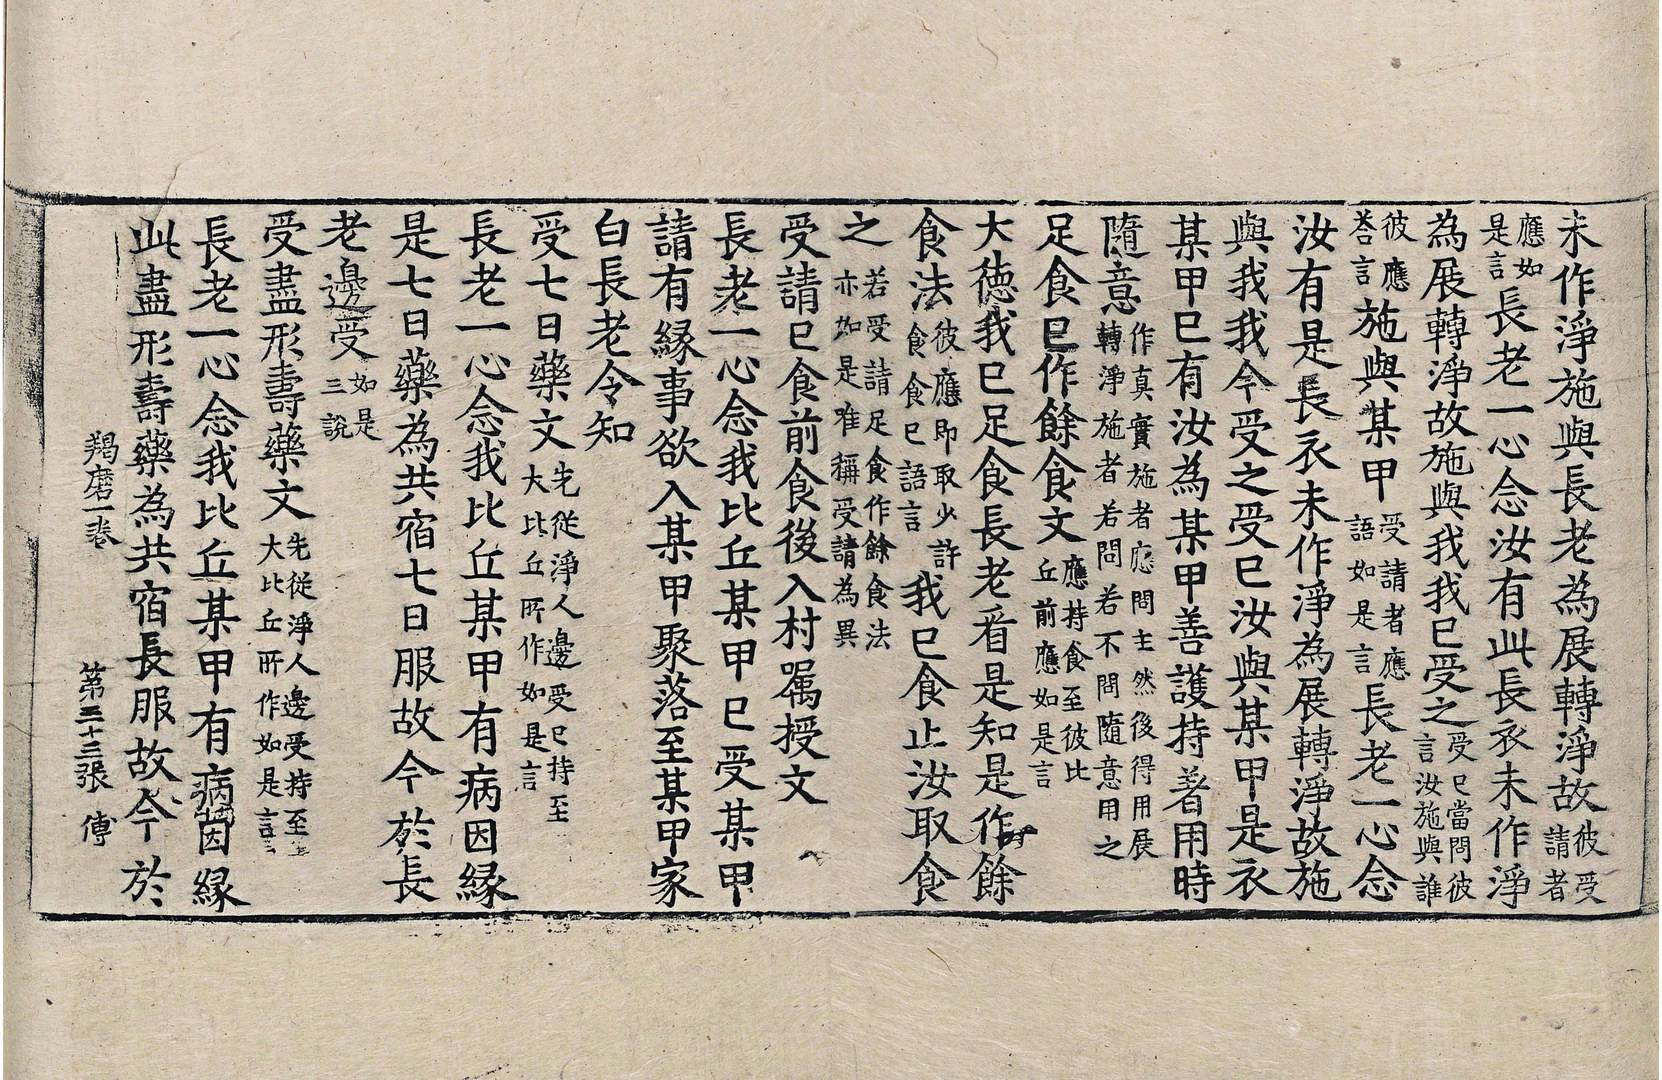 未作淨施與長老為展轉淨故彼受請者
應如是言長老一心念汝有此長衣未作淨
為展轉淨故施與我我已受之受已當問彼言汝施與誰
彼應荅言施與某甲受請者應語如是言長老一心念
汝有是長衣未作淨為展轉淨故施
與我我今受之受已汝與某甲是衣
某甲已有汝為某甲善護持著用時
隨意作真實施者應問主然後得用展轉淨施者若問若不問隨意用之
足食已作餘食文應持食至彼比丘前應如是言
大德我已足食長老看是知是作餘
食法彼應即取少許食食已語言我已食止汝取食
之若受請足食作餘食法亦如是唯稱受請為異
受請已食前食後入村囑授文
長老一心念我比丘某甲已受某甲
請有緣事欲入某甲聚落至某甲家
白長老令知
受七日藥文先從淨人邊受已持至大比丘所作如是言
長老一心念我比丘某甲有病因緣
是七日藥為共宿七日服故今於長
老邊受如是三說
受盡形壽藥文先從淨人邊受持至大比丘所作如是言
長老一心念我比丘某甲有病因緣
此盡形壽藥為共宿長服故今於
羯磨一卷 第三十三張 傅